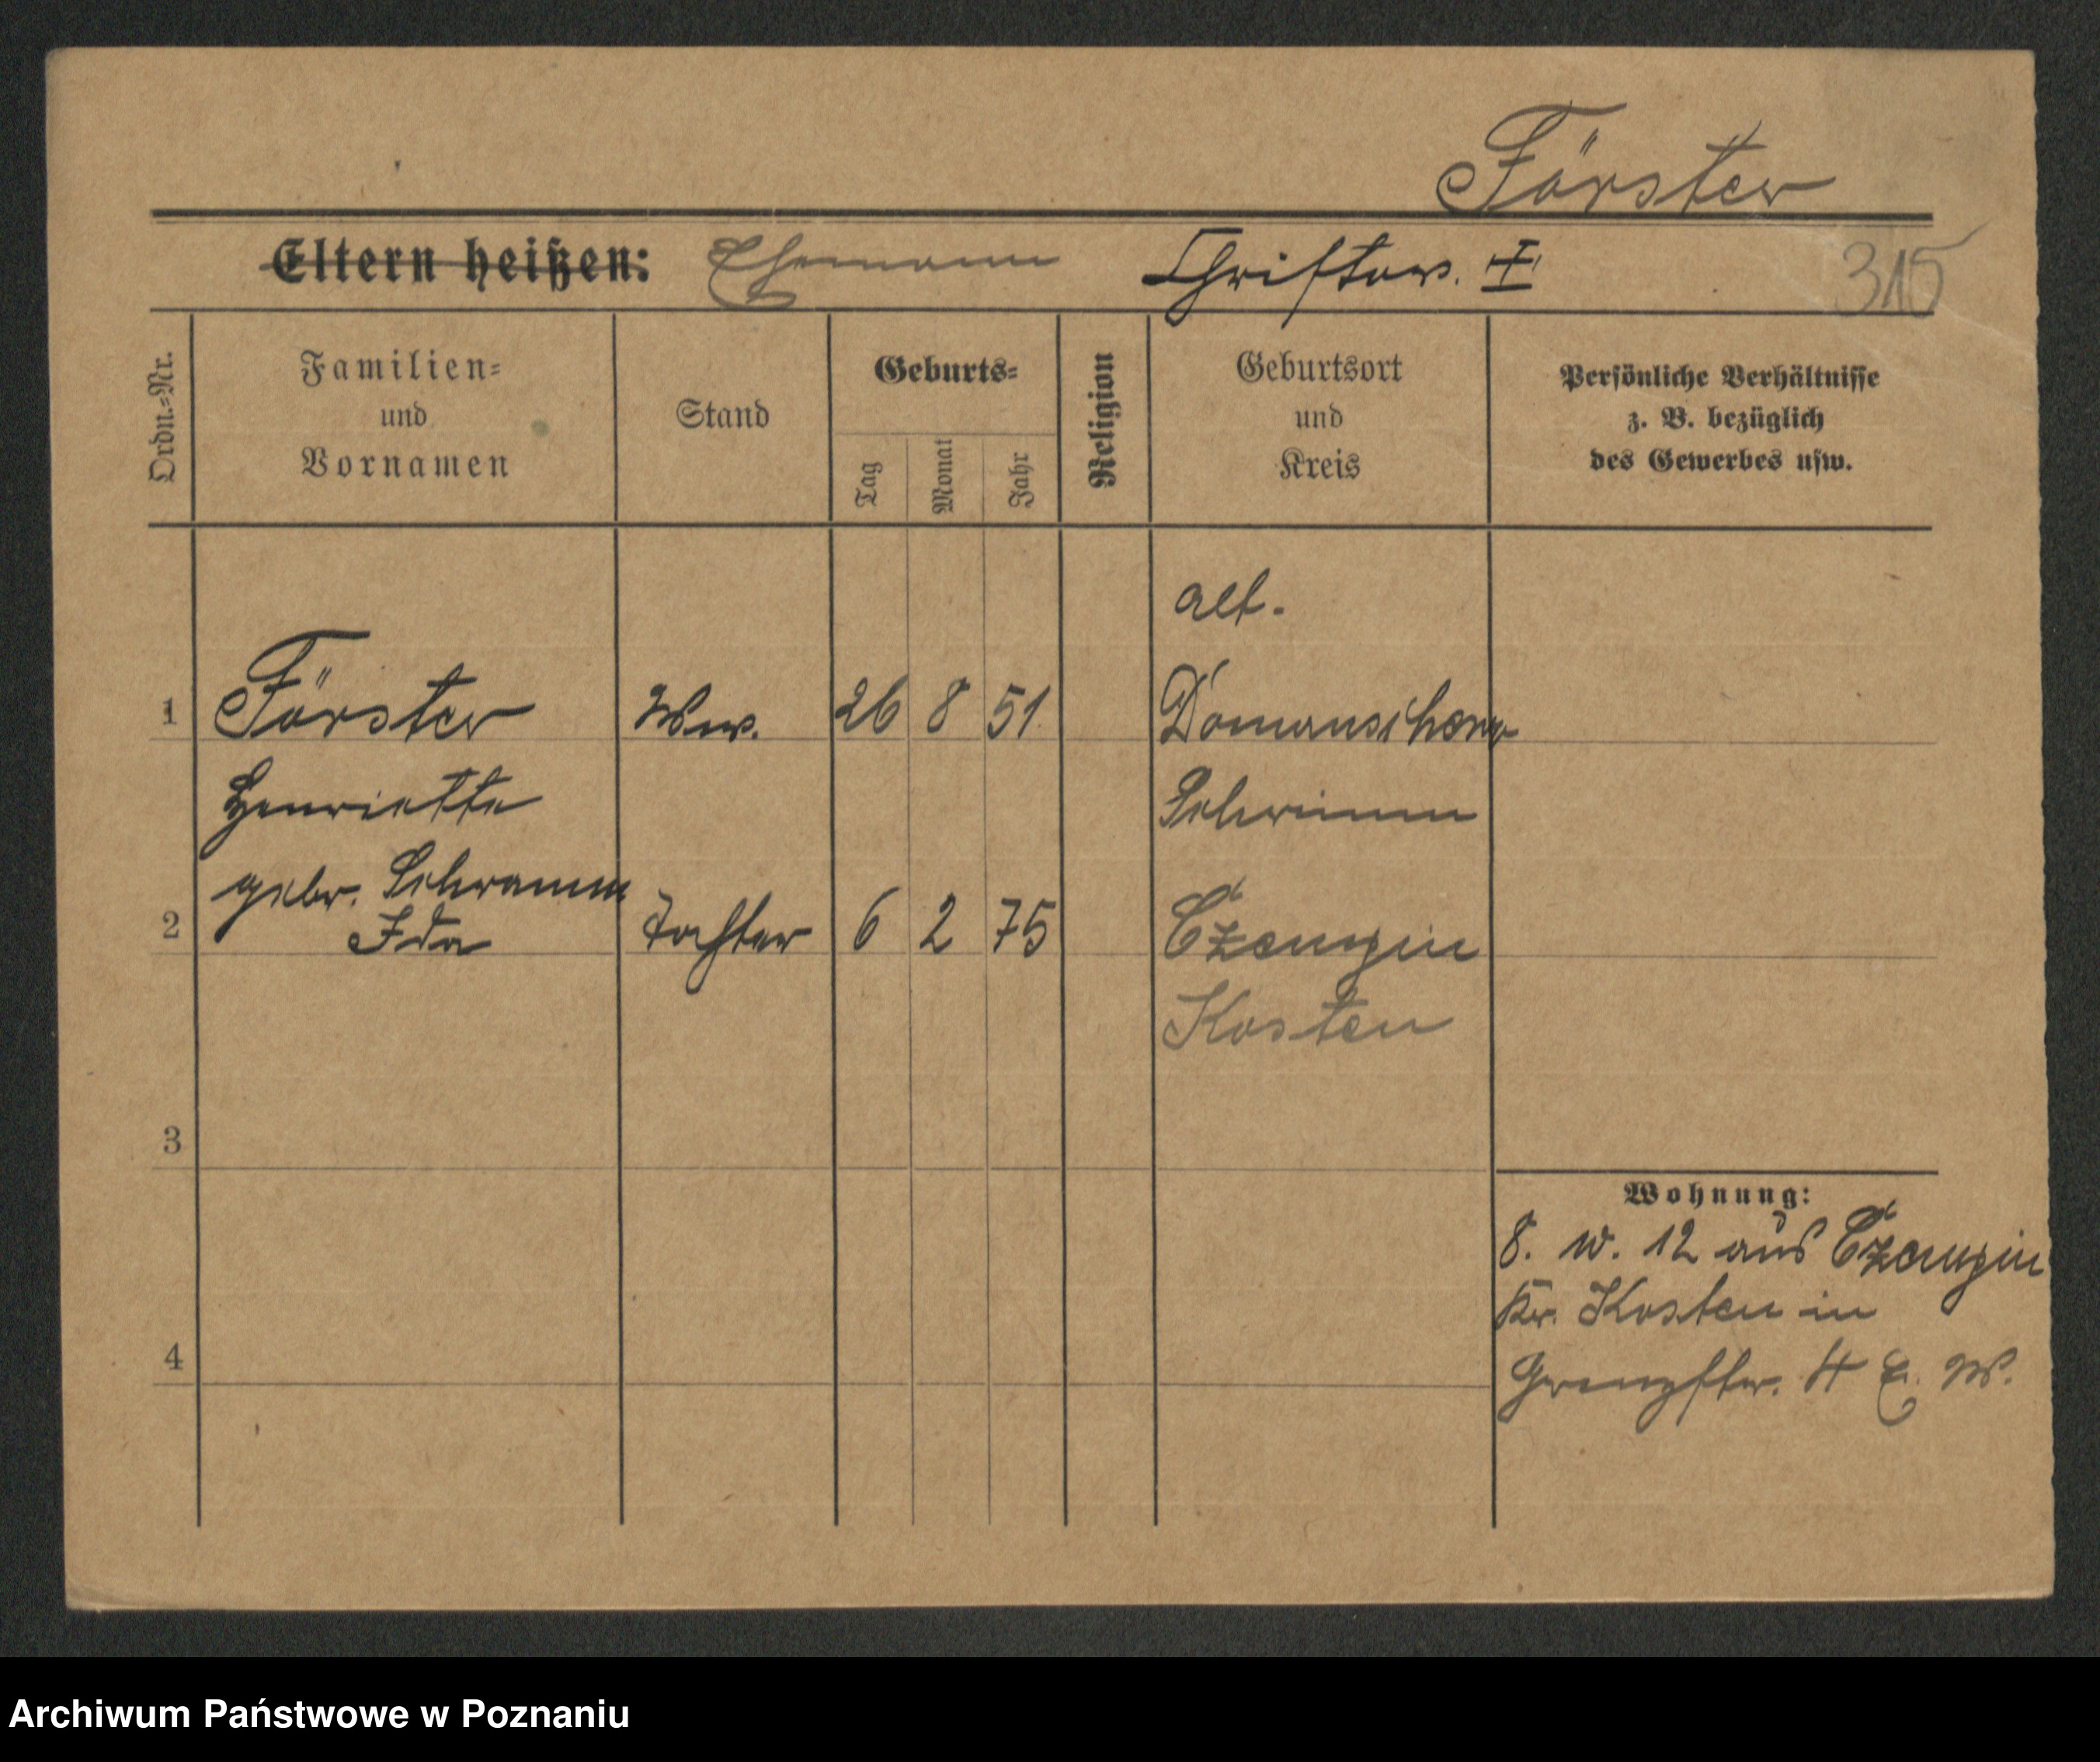 Förster
Eltern heißen: Ehemann Christof. †
315
Ordn.-Nr.
Familien=
und
Vornamen
Stand
Geburts=
Tag
Monat
Jahr
Religion
Geburtsort
und
Kreis
Persönliche Verhältnisse
z. B. bezüglich
des Gewerbes usw.
alt.
1 Förster Ww. 26 8 51
Henriette Schrimm
gebr. Schramm
2 Ida Tochter 6 2 75 Czempin
Kosten
3
Wohnung:
8. IV. 12 aus Czempin
Kr. Kosten in
4
4 E. W.
Archiwum Państwowe w Poznaniu